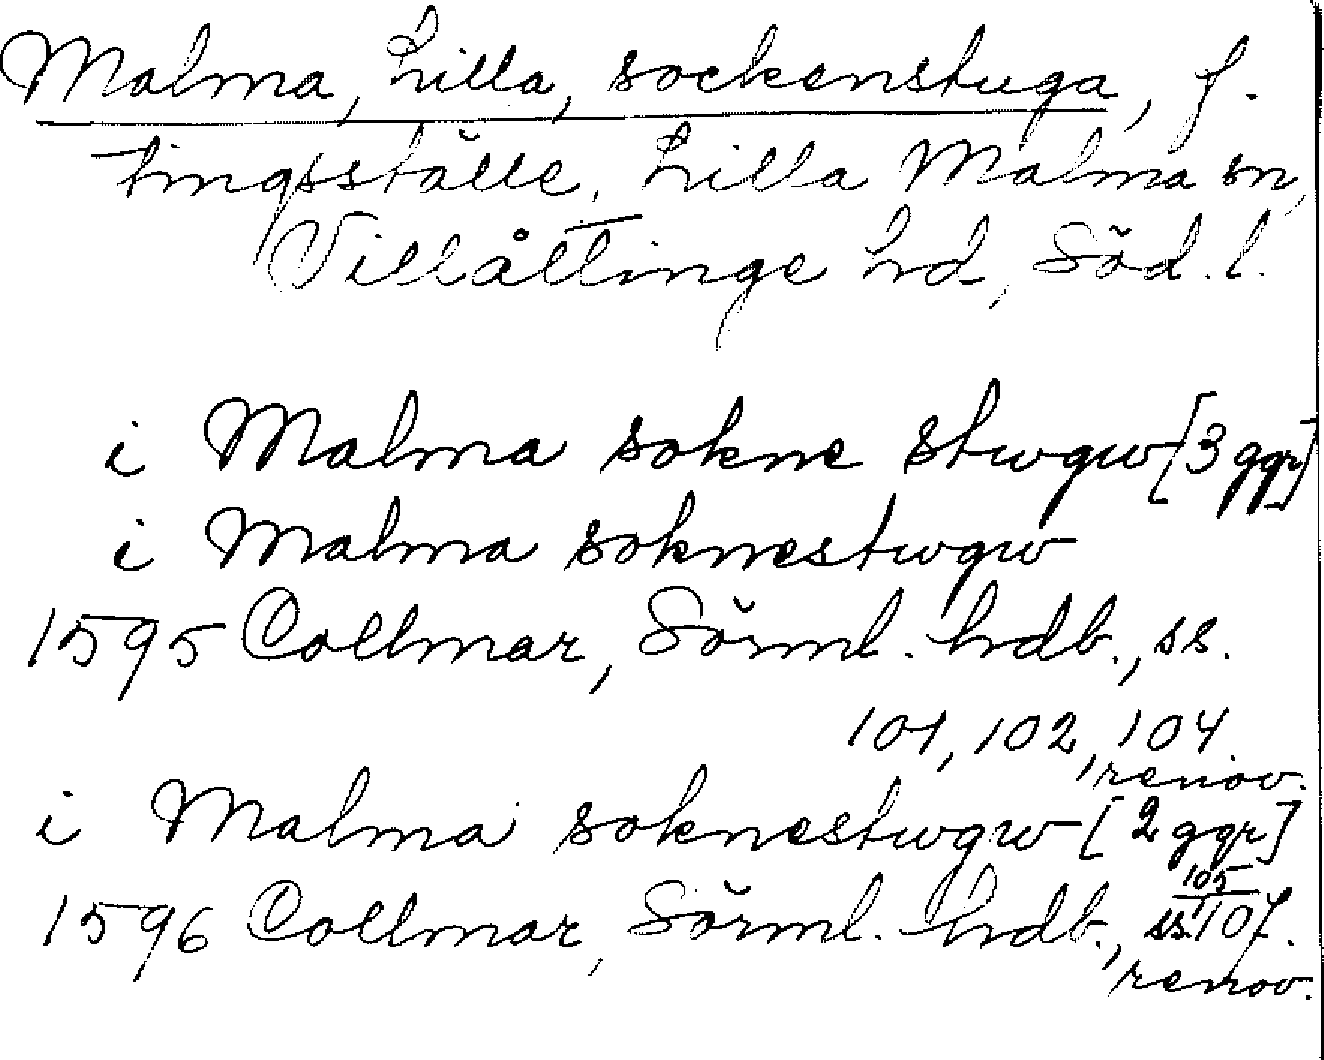 Malma, Lilla, sockenstuga, f.
tingsställe, Lilla Malma sn,
Villåttinge hd, Söd. l.
i Malma sokne stwgw [3 ggr]
i Malma soknestwgw
1595 Collmar, Sörml. hdb., ss.
101, 102, 104.
renov.
i Malma soknestwgw [2 ggr]
105
1596 Collmar, Sörml. hdb., ss. 107.
renov.